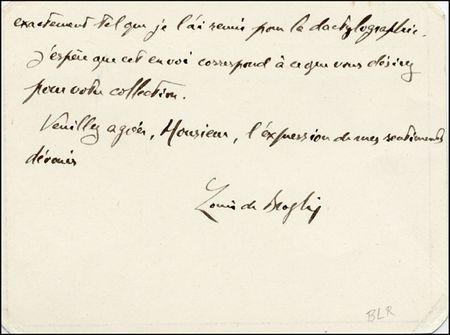 exactement tel que je l'ai remis pour la dactylographie.
J'espère que cet envoi correspond à ce que vous désirez
pour votre collection.
Veuillez agréer, Monsieur, l'expression de mes sentiments
dévoués
Louis de Broglie
BLR